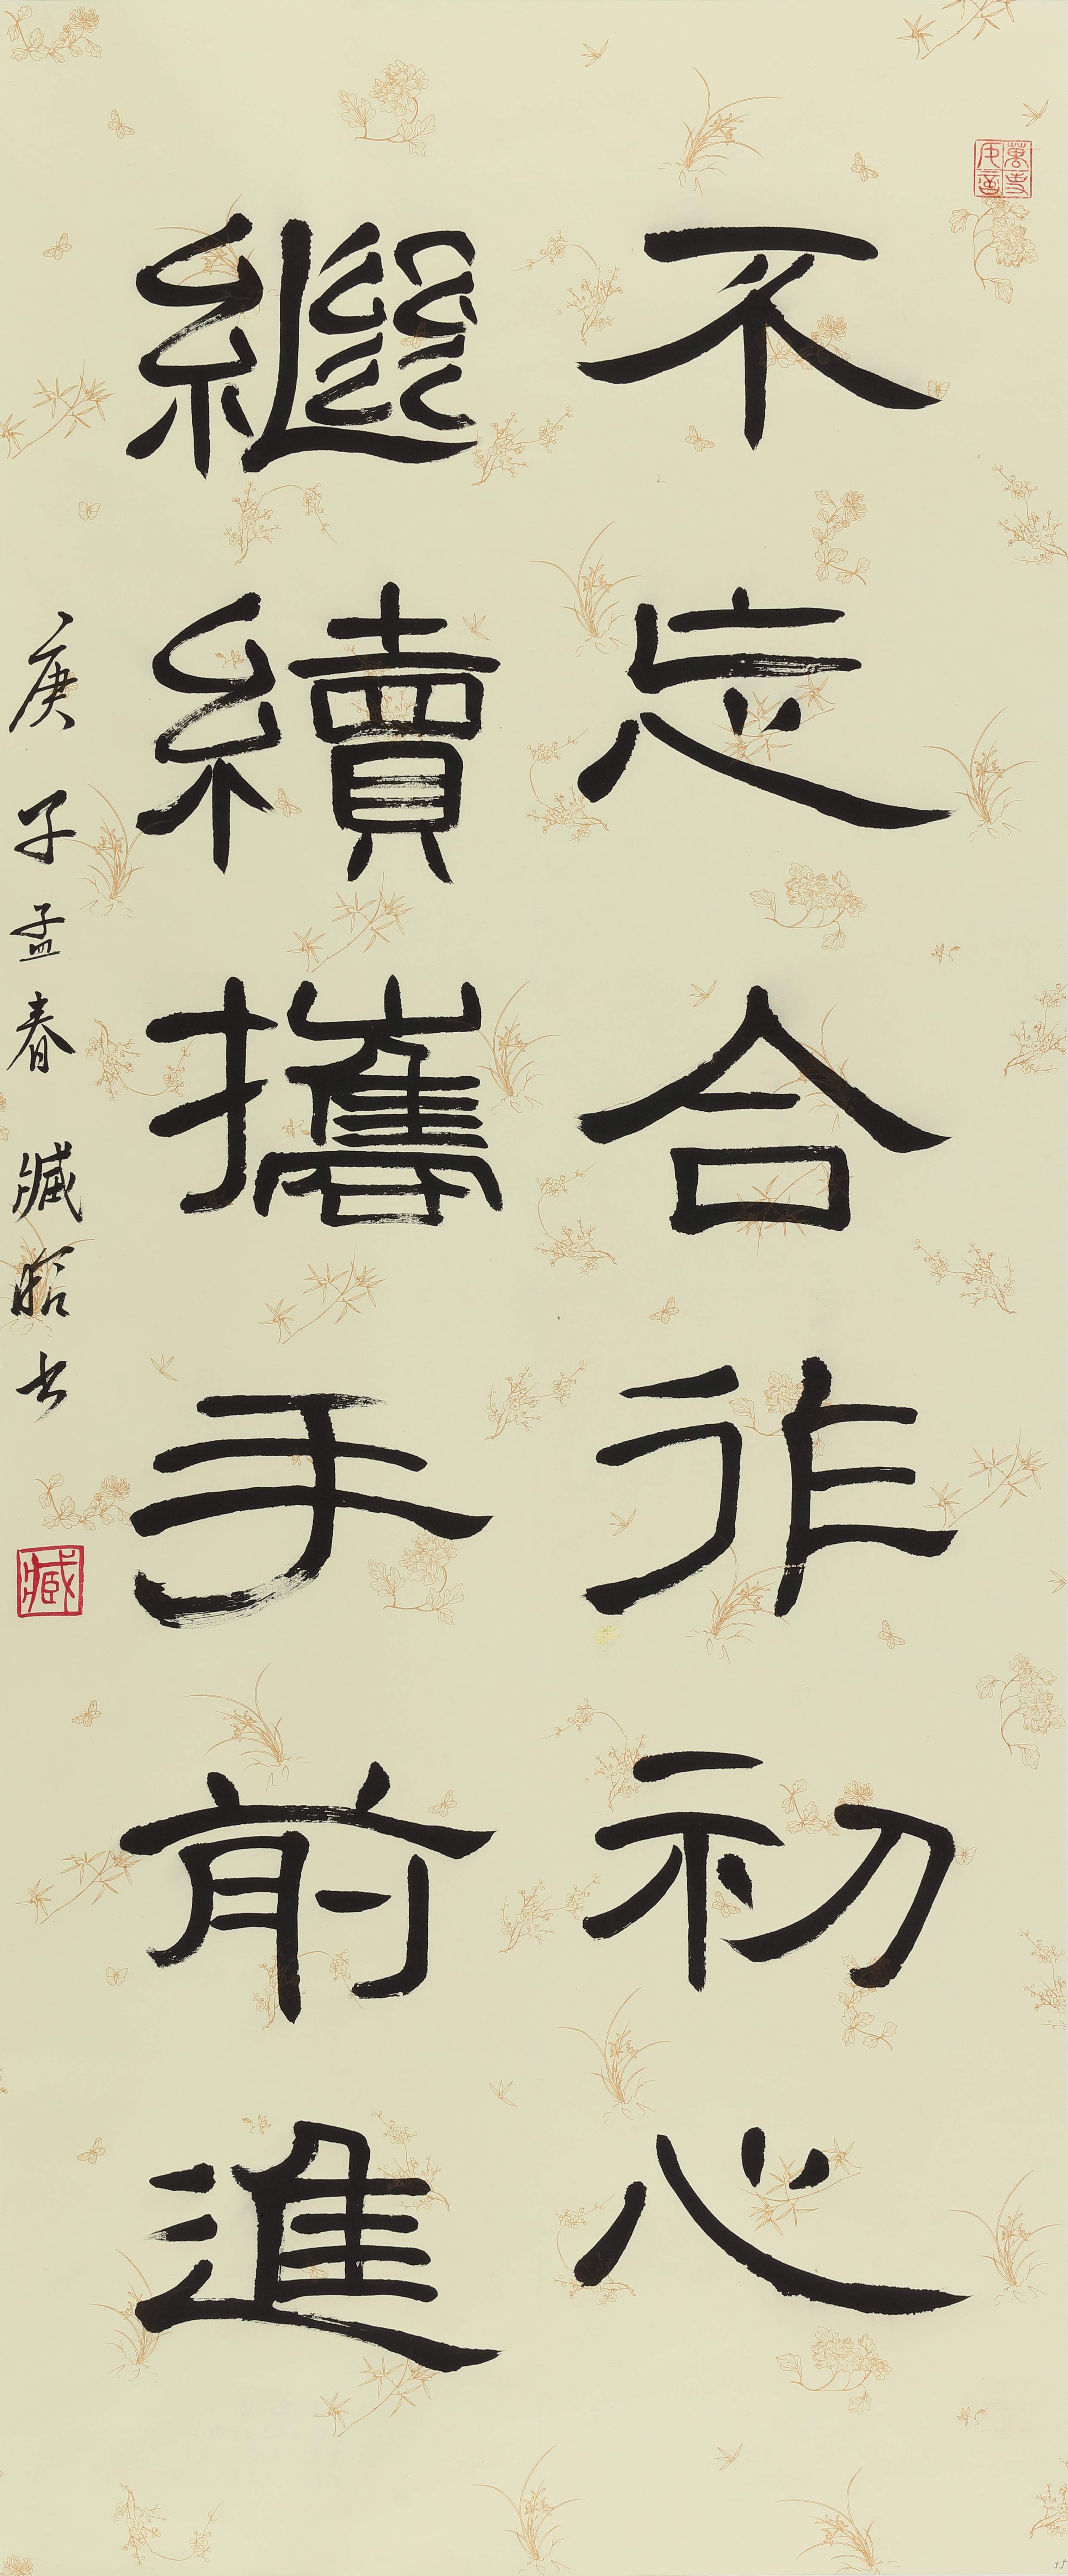 不忘合作初心
繼續攜手前進
庚子孟春 臧昭书
臧